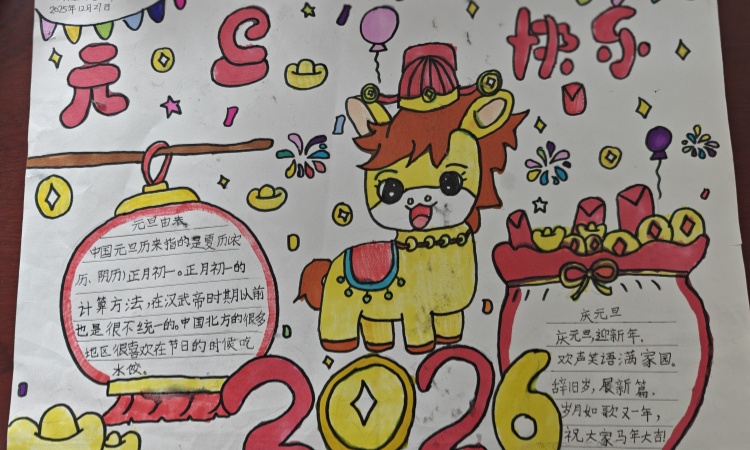 2025年12月27日
元旦快乐
元旦由来
中国元旦历来指的是夏历(农
历、阴历)正月初一。正月初一的
计算方法,在汉武帝时期以前
也是很不统一的。中国北方的很多
地区很喜欢在节日的时候吃
水饺。
庆元旦
庆元旦,迎新年,
欢声笑语满家园。
辞旧岁,展新篇,
岁月如歌又一年,
祝大家马年大吉!
2026